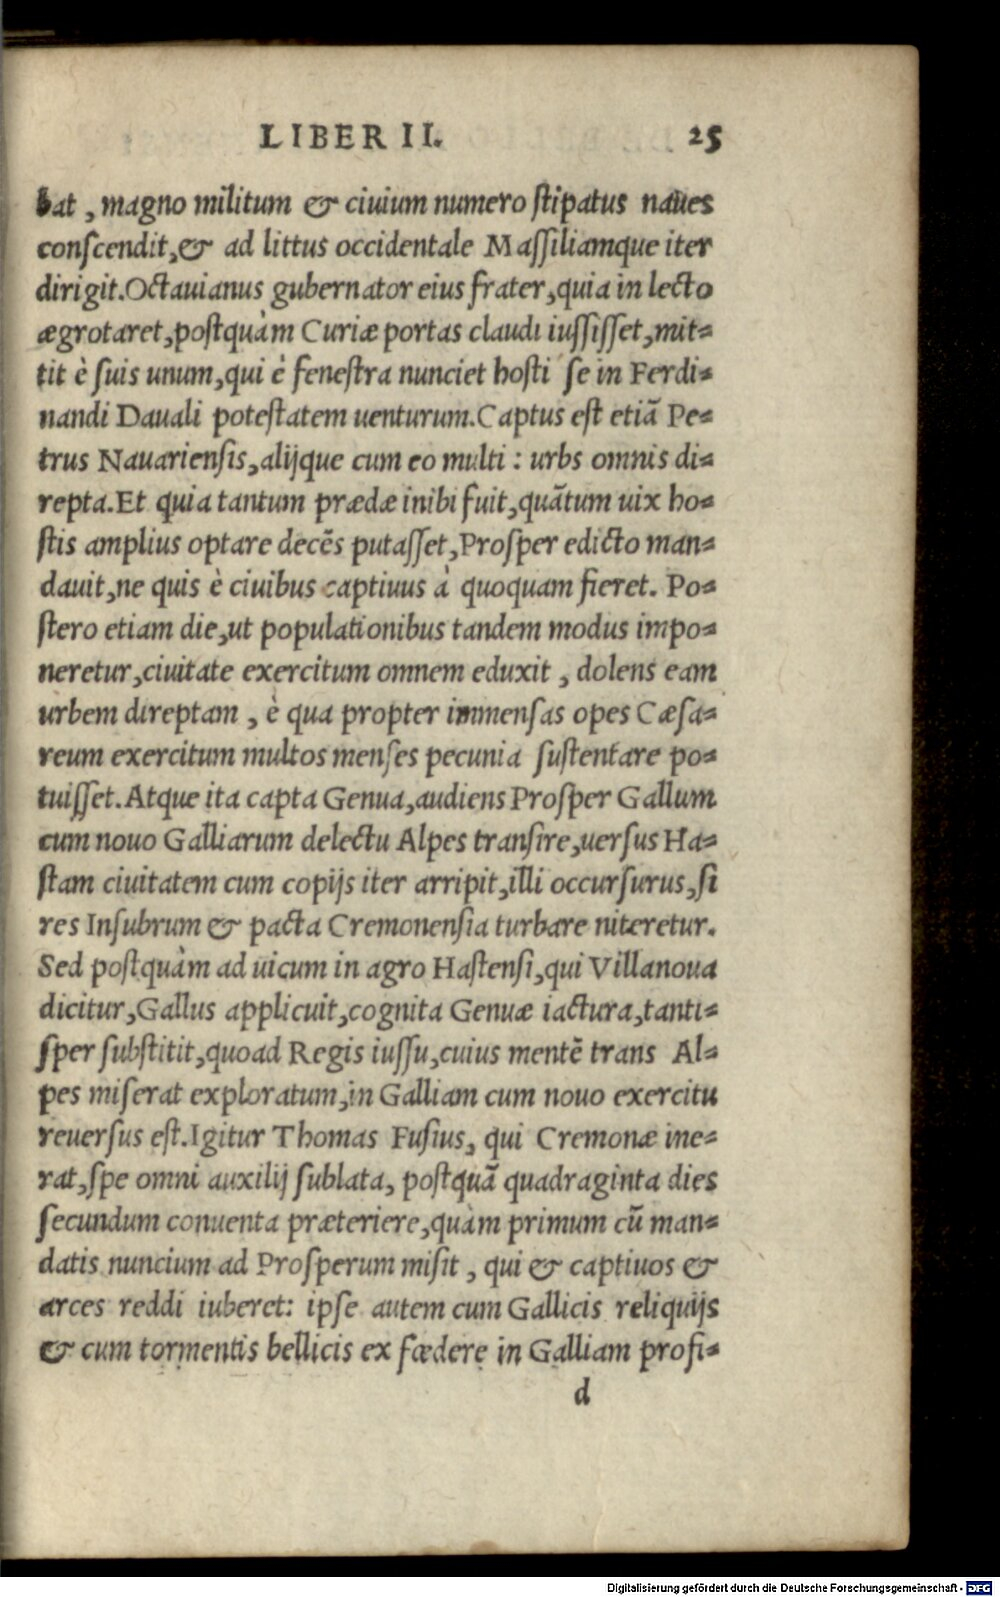 LIBER II. 25
bat, magno militum & ciuium numero ſtipatus naues
conſcendit, & ad littus occidentale Maſſiliamque iter
dirigit. Octauianus gubernator eius frater, quia in lecto
ægrotaret, poſtquàm Curiæ portas claudi iuſſiſſet, mit-
tit è ſuis unum, qui è feneſtra nunciet hoſti ſe in Ferdi-
nandi Dauali poteſtatem uenturum. Captus eſt etiā Pe-
trus Nauarienſis, alijque cum eo multi: urbs omnis di-
repta. Et quia tantum prædæ inibi fuit, quātum uix ho-
ſtis amplius optare decēs putaſſet, Proſper edicto man-
dauit, ne quis è ciuibus captiuus à quoquam fieret. Po-
ſtero etiam die, ut populationibus tandem modus impo-
neretur, ciuitate exercitum omnem eduxit, dolens eam
urbem direptam, è qua propter immenſas opes Cæſa-
reum exercitum multos menſes pecunia ſuſtentare po-
tuiſſet. Atque ita capta Genua, audiens Proſper Gallum
cum nouo Galliarum delectu Alpes tranſire, uerſus Ha-
ſtam ciuitatem cum copijs iter arripit, illi occurſurus, ſi
res Inſubrum & pacta Cremonenſia turbare niteretur.
Sed poſtquàm ad uicum in agro Haſtenſi, qui Villanoua
dicitur, Gallus applicuit, cognita Genuæ iactura, tanti-
ſper ſubſtitit, quoad Regis iuſſu, cuius mentē trans Al-
pes miſerat exploratum, in Galliam cum nouo exercitu
reuerſus eſt. Igitur Thomas Fuſius, qui Cremonæ ine-
rat, ſpe omni auxilij ſublata, poſtquā quadraginta dies
ſecundum conuenta præteriere, quàm primum cū man-
datis nuncium ad Proſperum miſit, qui & captiuos &
arces reddi iuberet: ipſe autem cum Gallicis reliquijs
& cum tormentis bellicis ex fœdere in Galliam profi-
d
Digitalisierung gefördert durch die Deutsche Forschungsgemeinschaft - DFG